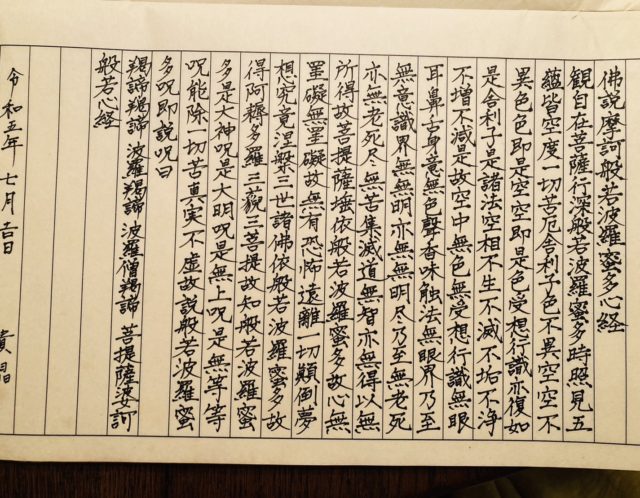 佛説摩訶般若波羅蜜多心経
観自在菩薩行深般若波羅蜜多時照見五
蘊皆空度一切苦厄舎利子色不異空空不
異色色即是空空即是色受想行識亦復如
是舎利子是諸法空相不生不滅不垢不浄
不増不減是故空中無色無受想行識無眼
耳鼻舌身意無色聲香味触法無眼界乃至
無意識界無無明亦無無明尽乃至無老死
亦無老死尽無苦集滅道無智亦無得以無
所得故菩提薩埵依般若波羅蜜多故心無
罣礙無罣礙故無有恐怖遠離一切顛倒夢
想究竟涅槃三世諸佛依般若波羅蜜多故
得阿耨多羅三藐三菩提故知般若波羅蜜
多是大神呪是大明呪是無上呪是無等等
呪能除一切苦真実不虚故説般若波羅蜜
多呪即説呪曰
羯諦羯諦 波羅羯諦 波羅僧羯諦 菩提薩婆訶
般若心経
令和五年 七月吉日